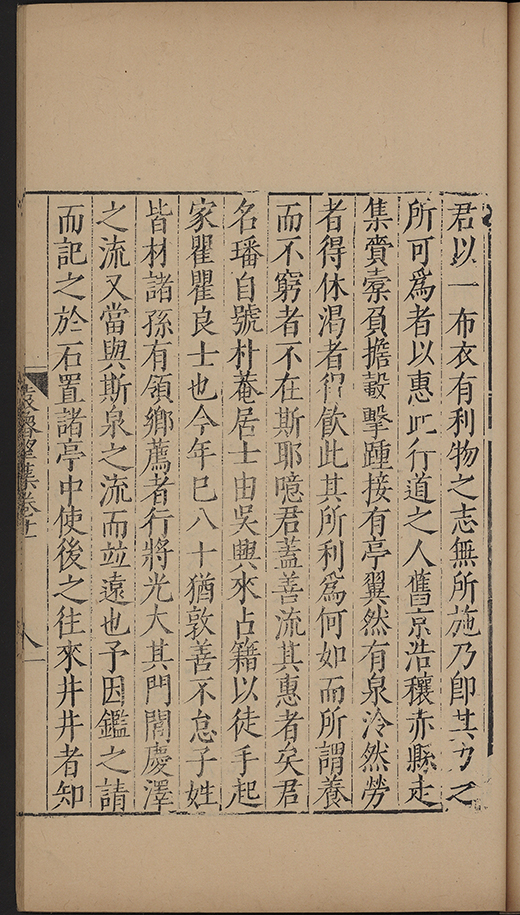 君以一布衣有利物之志無所施乃卽其力之
所可為者以惠此行道之人舊京浩穰赤縣走
集賷橐負擔轂擊踵接有亭翼然有泉泠然勞
者得休渴者得飲此其所利為何如而所謂養
而不窮者不在斯耶噫君蓋善流其惠者矣君
名璠自號朴菴居士由吳興來占籍以徒手起
家瞿瞿良士也今年巳八十猶敦善不怠子姓
皆材諸孫有領鄉薦者行將光大其門閭慶澤
之流又當與斯泉之流而竝遠也予因鑑之請
而記之於石置諸亭中使後之往來井井者知
集卷十一
八